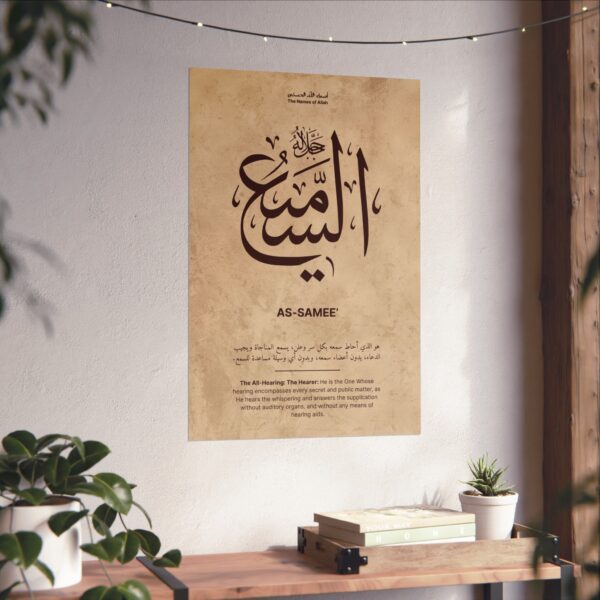 أسماء الله الحسنى
The Names of Allah
جَلَّ جَلَالُهُ
السَّمِيعُ
AS-SAMEE'
هو الذي أحاط سمعه بكل سر وعلن، يسمع المناجاة ويجيب
الدعاء، بدون أعضاء سمعه، وبدون أي وسيلة مساعدة للسمع.
The All-Hearing: The Hearer: He is the One Whose
hearing encompasses every secret and public matter, as
He hears the whispering and answers the supplication
without auditory organs, and without any means of
hearing aids.
HOME